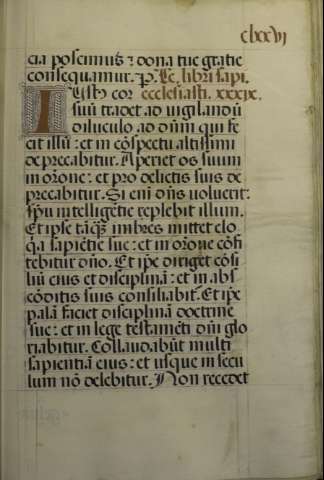 clxxvj
cia poscimus: et dona tue gratie
consequamur. P. Lc. libri sapi.
Iustus cor ecclesiasti. xxxix.
suū tradet ad vigilandū
diluculo ad dn̄m qui fe
cit illū: et in cōspectu altissimi
deprecabitur. Aperiet os suum
in orōne: et pro delictis suis de
precabitur. Si eni dn̄s voluerit:
spū intelligētie replebit illum.
Et ipse tāq̄ imbres mittet elo
q̄a sapiētie sue: et in orōne cōfi
tebitur dn̄o. Et ip̄e diriget cōsi
liū eius et disciplinā: et in abs
cōditis suis consiliabit. Et ip̄e
palā faciet disciplinā doctrine
sue: et in lege testamēti dn̄i glo
riabitur. Collaudabūt multi
sapientiā eius: et usque in secu
lum nō delebitur. Non recedet